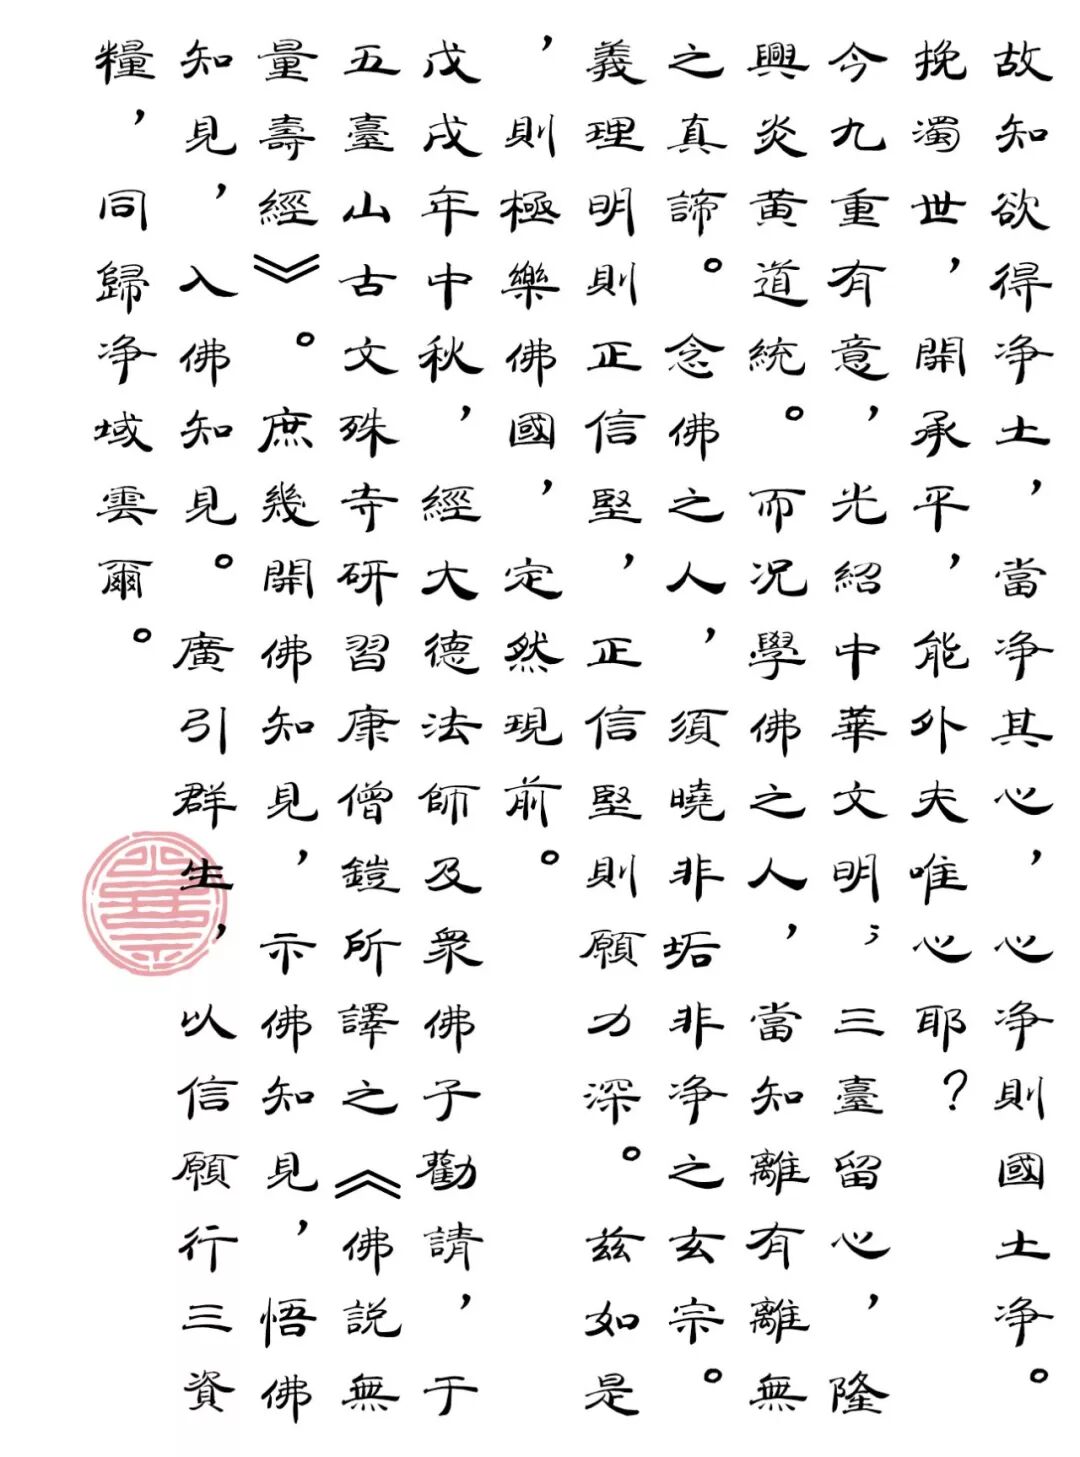 故知欲得净土，當净其心，心净則國土净。
挽濁世，開承平，能外夫唯心耶？
今九重有意，光紹中華文明；三臺留心，隆
興炎黄道統。而况學佛之人，當知離有離無
之真諦。念佛之人，須曉非垢非净之玄宗。
義理明則正信堅，正信堅則願力深。兹如是
，則極樂佛國，定然現前。
戊戌年中秋，經大德法師及衆佛子勸請，于
五臺山古文殊寺研習康僧鎧所譯之《佛説無
量壽經》。庶幾開佛知見，示佛知見，悟佛
知見，入佛知見。廣引群生，以信願行三資
糧，同歸净域雲爾。